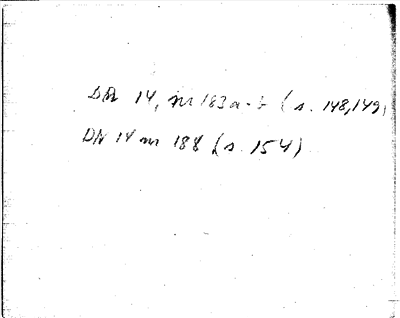 DN 14, nr 183a-b (s. 148, 149)
DN 14 nr 188 (s. 154)